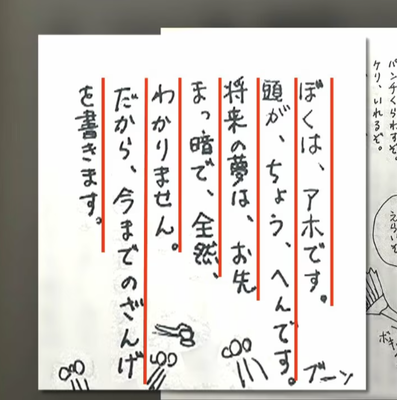 ぼくは、アホです。
頭が、ちょう、へんです。
将来の夢は、お先
まっ暗で、全然、
わかりません。
だから、今までのざんげ
を書きます。
ブーン
パンチくらわすぞ。
ケリ、いれるぞ。